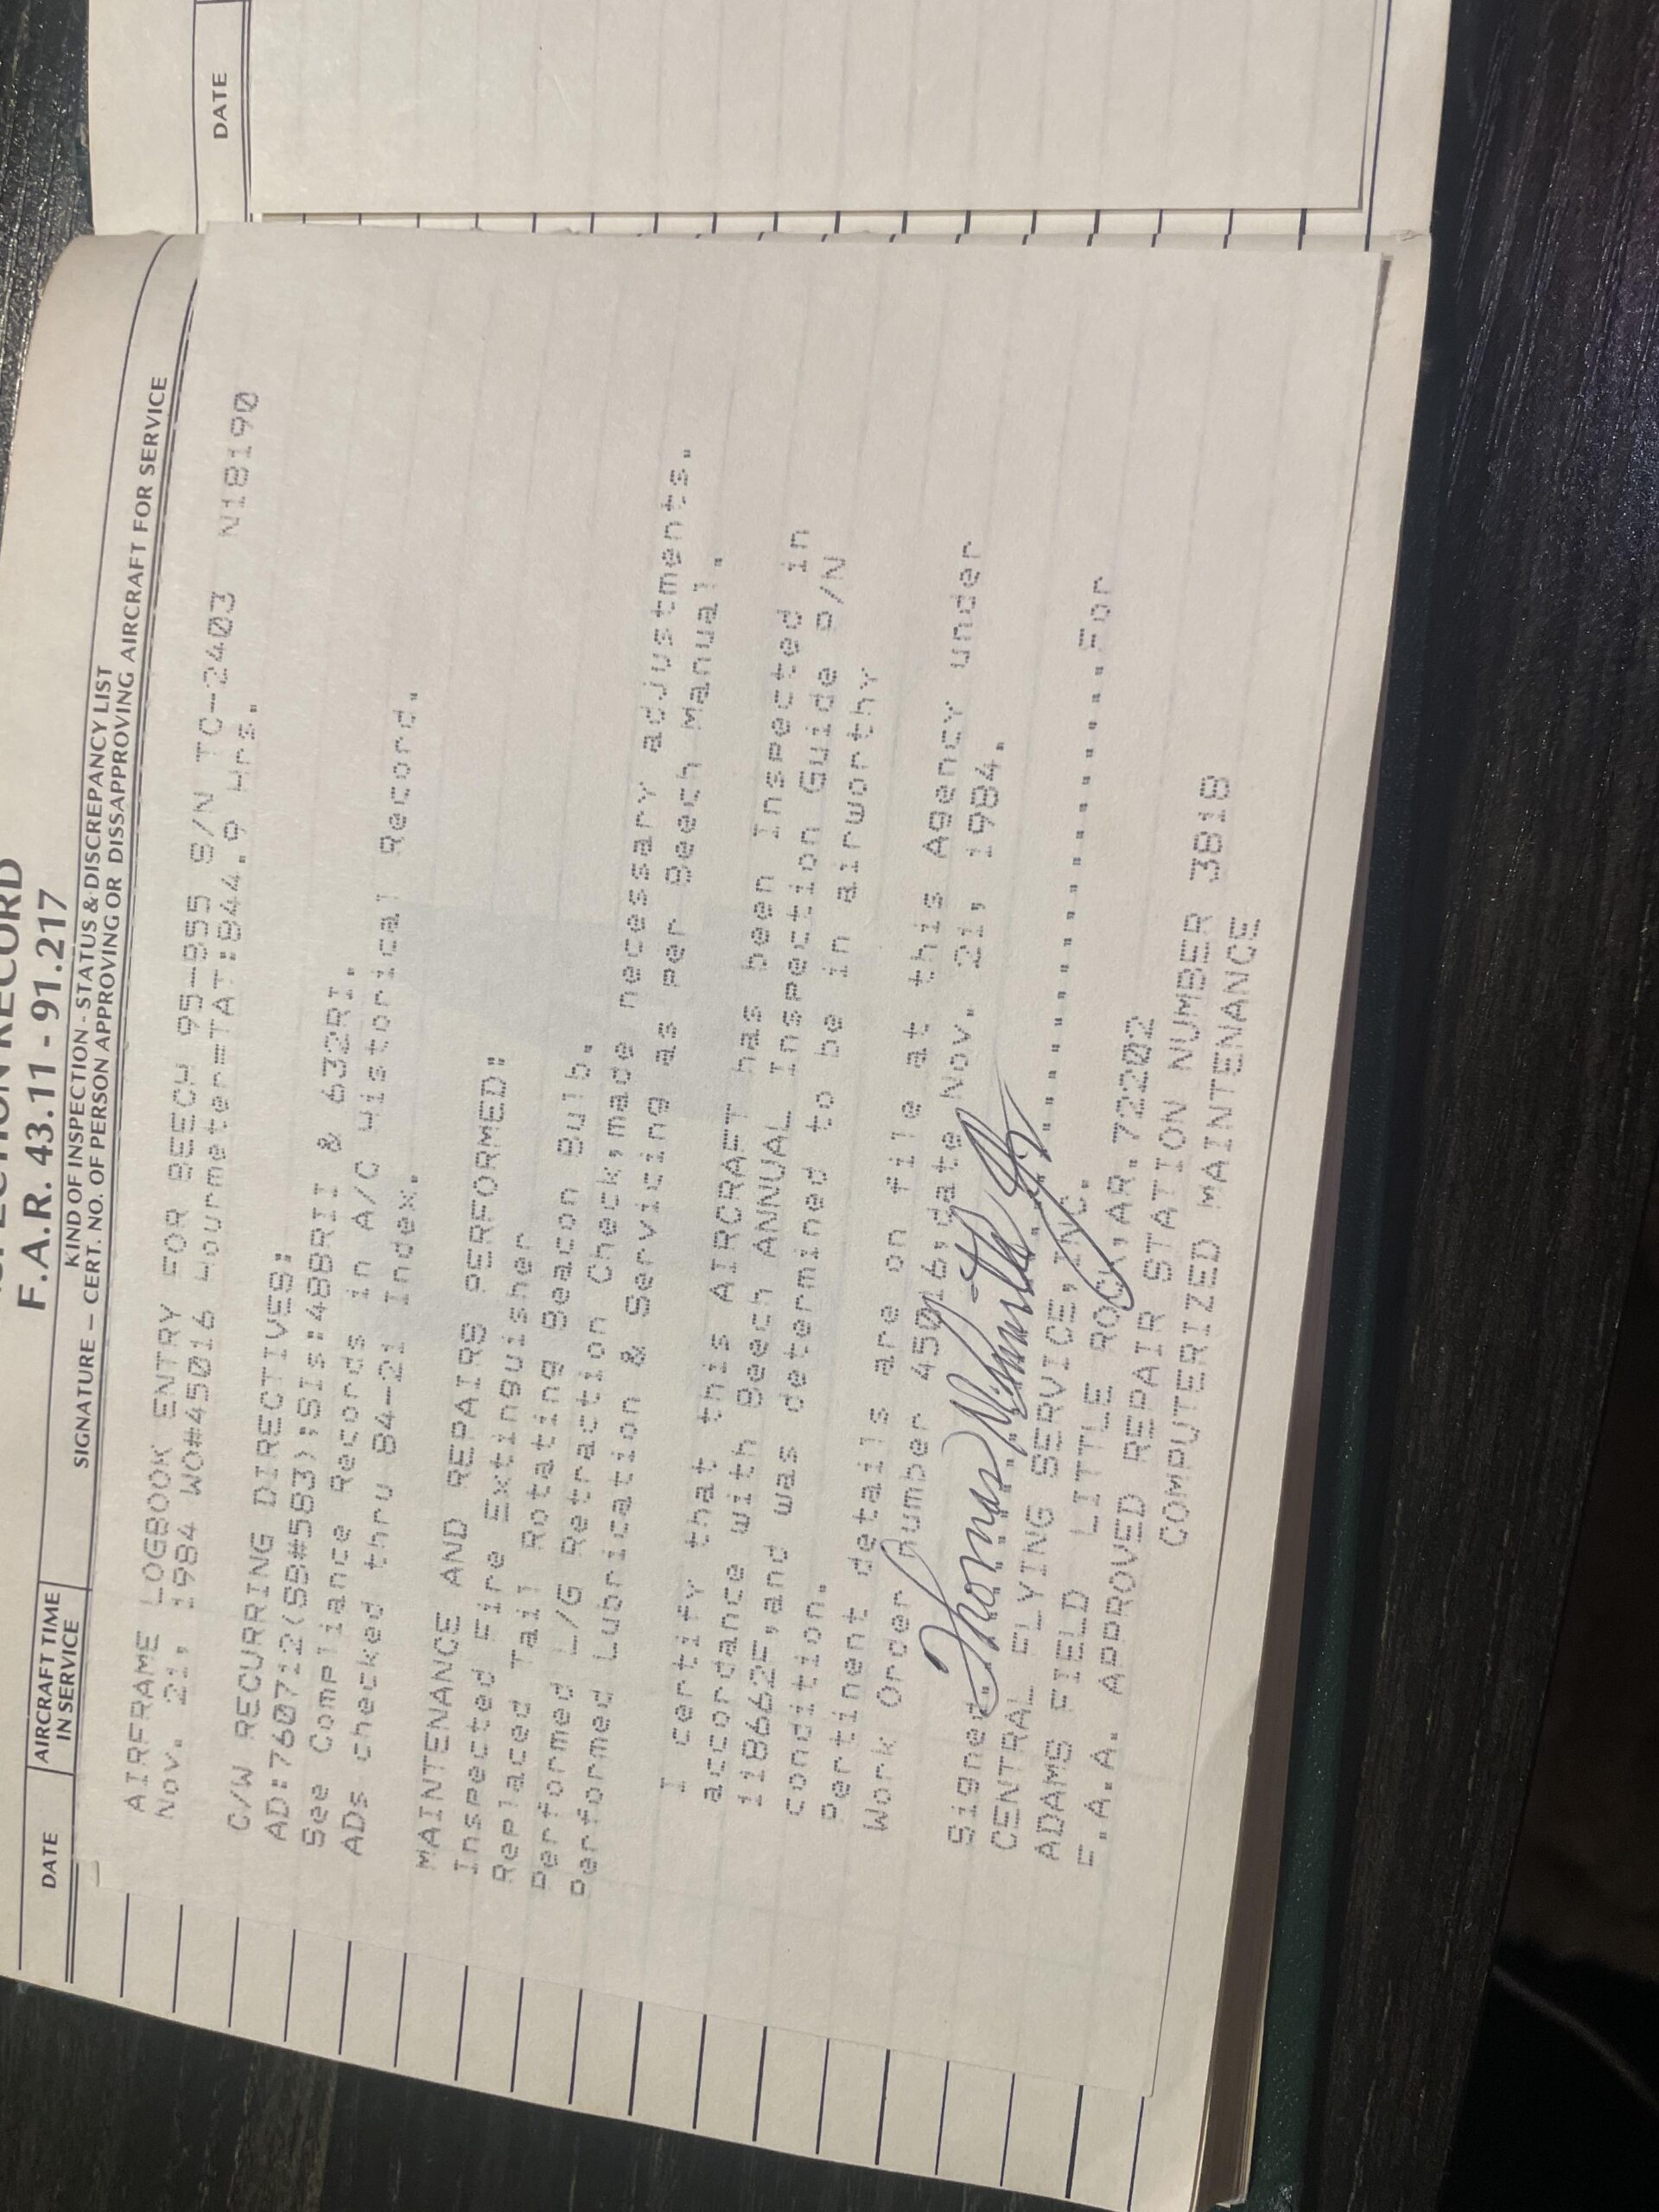 F.A.R. 43.11 - 91.217
DATE
AIRCRAFT TIME
IN SERVICE
KIND OF INSPECTION - STATUS & DISCREPANCY LIST
SIGNATURE — CERT. NO. OF PERSON APPROVING OR DISAPPROVING AIRCRAFT FOR SERVICE
AIRFRAME LOGBOOK ENTRY FOR BEECH 95-B55 S/N TC-2403 N18190
Nov. 21, 1984 WO#45016 Hourmeter=TAT:844.9 Hrs.
C/W RECURRING DIRECTIVES:
AD:760712(SB#583);SIs:488RII & 632RI:
See Compliance Records in A/C Historical Record.
ADs checked thru 84-21 Index.
MAINTENANCE AND REPAIRS PERFORMED:
Inspected Fire Extinguisher
Replaced Tail Rotating Beacon Bulb.
Performed L/G Retraction Check,made necessary adjustments.
Performed Lubrication & Servicing as per Beech Manual.
I certify that this AIRCRAFT has been Inspected in
accordance with Beech ANNUAL Inspection Guide P/N
118662F,and was determined to be in airworthy
condition.
Pertinent details are on file at this Agency under
Work Order number 45016,date Nov. 21, 1984.
Signed Thomas For
CENTRAL FLYING SERVICE,INC.
ADAMS FIELD LITTLE ROCK,AR.72202
F.A.A. APPROVED REPAIR STATION NUMBER 3818
COMPUTERIZED MAINTENANCE
DATE